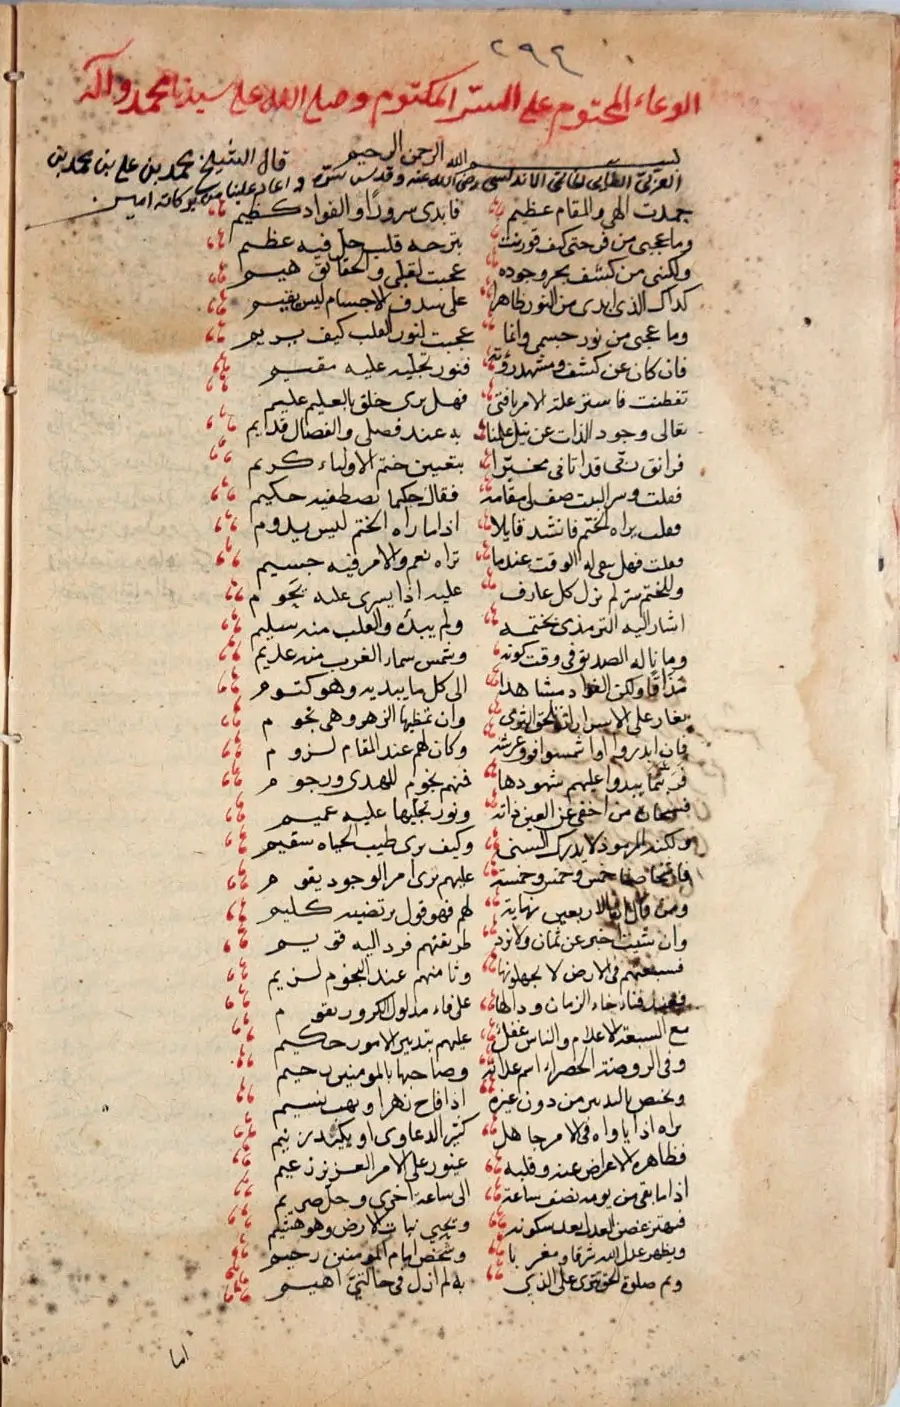 ٢٩٤
الوعاء المختوم على السر المكتوم وصلى الله على سيدنا محمد وآله
بسم الله الرحمن الرحيم قال الشيخ محمد بن علي بن محمد بن
العربي الطائي الحاتمي الاندلسي رضي الله عنه وقدس سره واعاد علينا من بركاته امين
حمدت الهي والمقام عظيم فابدى سرورا والفواد كظيم
وما عجبي من فرحتي كيف قورنت بترحة قلب حل فيه عظيم
ولكنني من كشف بحر وجوده عجبت لقلبي والحقائق هيم
كذاك الذي ابدى من النور ظاهرا على سدف الاجسام ليس يقيم
وما عجبي من نور جسمي وانما عجبت لنور القلب كيف يريم
فان كان عن كشف ومشهد رؤية فنور تجليه عليه مقيم
تفطنت فاستر علة الامر يا فتى فهل يرى خلق بالعليم عليم
تعالى وجود الذات عن نيل علمنا به عند فصلي والفصال قديم
فرانق قد اتاني مخبرا بتعيين ختم الاولياء كريم
فقلت وسر البيت صف لي مقامه فقال حكيما يصطفيه حكيم
فقلت يراه الختم فانشد قايلا اذا ما راه الختم ليس يدوم
فقلت فهل يبقى له الوقت عندما تراه نعم والامر فيه جسيم
وللختم سر لم يزل كل عارف عليه اذا يسرى عليه يحوم
اشار اليه الترمذي بختمه ولم يبده والقلب منه سليم
وما ناله الصديق في وقت كونه وشمس سماء الغرب منه عديم
مذاقا ولكن الفواد مشاهد الى كل ما يبديه وهو كتوم
يغار على الاسرار ان تلحق الثرى وان تمتطيها الزهر وهي نجوم
فان ابدروا او اشمسوا فوق عرشه وكان لهم عند المقام لزوم
فربتما يبدوا عليهم شهودها فمنهم نجوم للهدى ورجوم
فسبحان من اخفى عن العين ذاته ونور تجليها عليه عميم
ولكنه المرموز لا يدرك السنى وكيف يرى طيب الحياه سقيم
فاشخاصنا خمس وخمس وخمسة عليهم نرى امر الوجود يقوم
ومن قال ان الاربعين نهاية لهم فهو قول يرتضيه كليم
وان شيت اخبر عن ثمان ولا تزد طريقتهم فرد اليه قويم
فسبعتهم في الارض لا يجهلونها وثامنهم عند النجوم لزيم
فعند فناء خاء الزمان ودالها على فاء مدلول الكرور يقوم
مع السبعة الاعلام والناس غفل عليهم بتدبير الامور حكيم
وفي الروضة الخضراء اسم عداته وصاحبها بالمومنين رحيم
ويختص بالتدبير من دون غيره اذا فاح زهرا ويهب نسيم
تراه اذا ناواه في الامر جاهل كثير الدعاوى او يكيد زنيم
فظاهره الاعراض عنه وقلبه غيور على الامر العزيز زعيم
اذا ما بقى من يومه نصف ساعة الى ساعة اخرى وحل صريم
فيهتز غصن العدل بعد سكونه ويحيي نبات الارض وهو هشيم
ويظهر عدل الله شرقا ومغربا وشخص امام المومنين رحيم
وثم صلوة الحق تترى على الذي به لم ازل في حالتي اهيم
اما